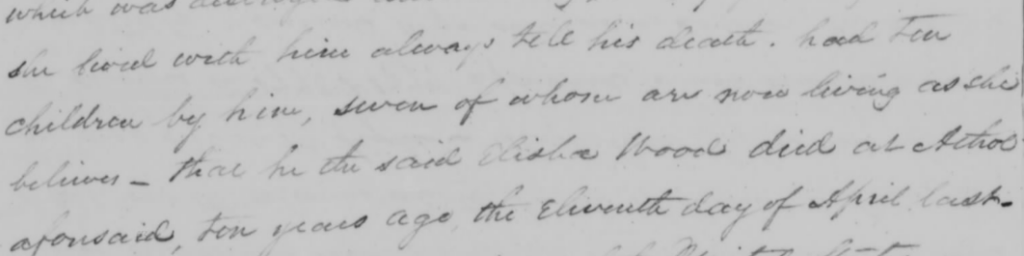 which was
she lived with him always till his death. had ten
children by him, seven of whom are now living as she
believes - that he the said Elisha Wood died at Athol
aforesaid, ten years ago, the Eleventh day of April last.